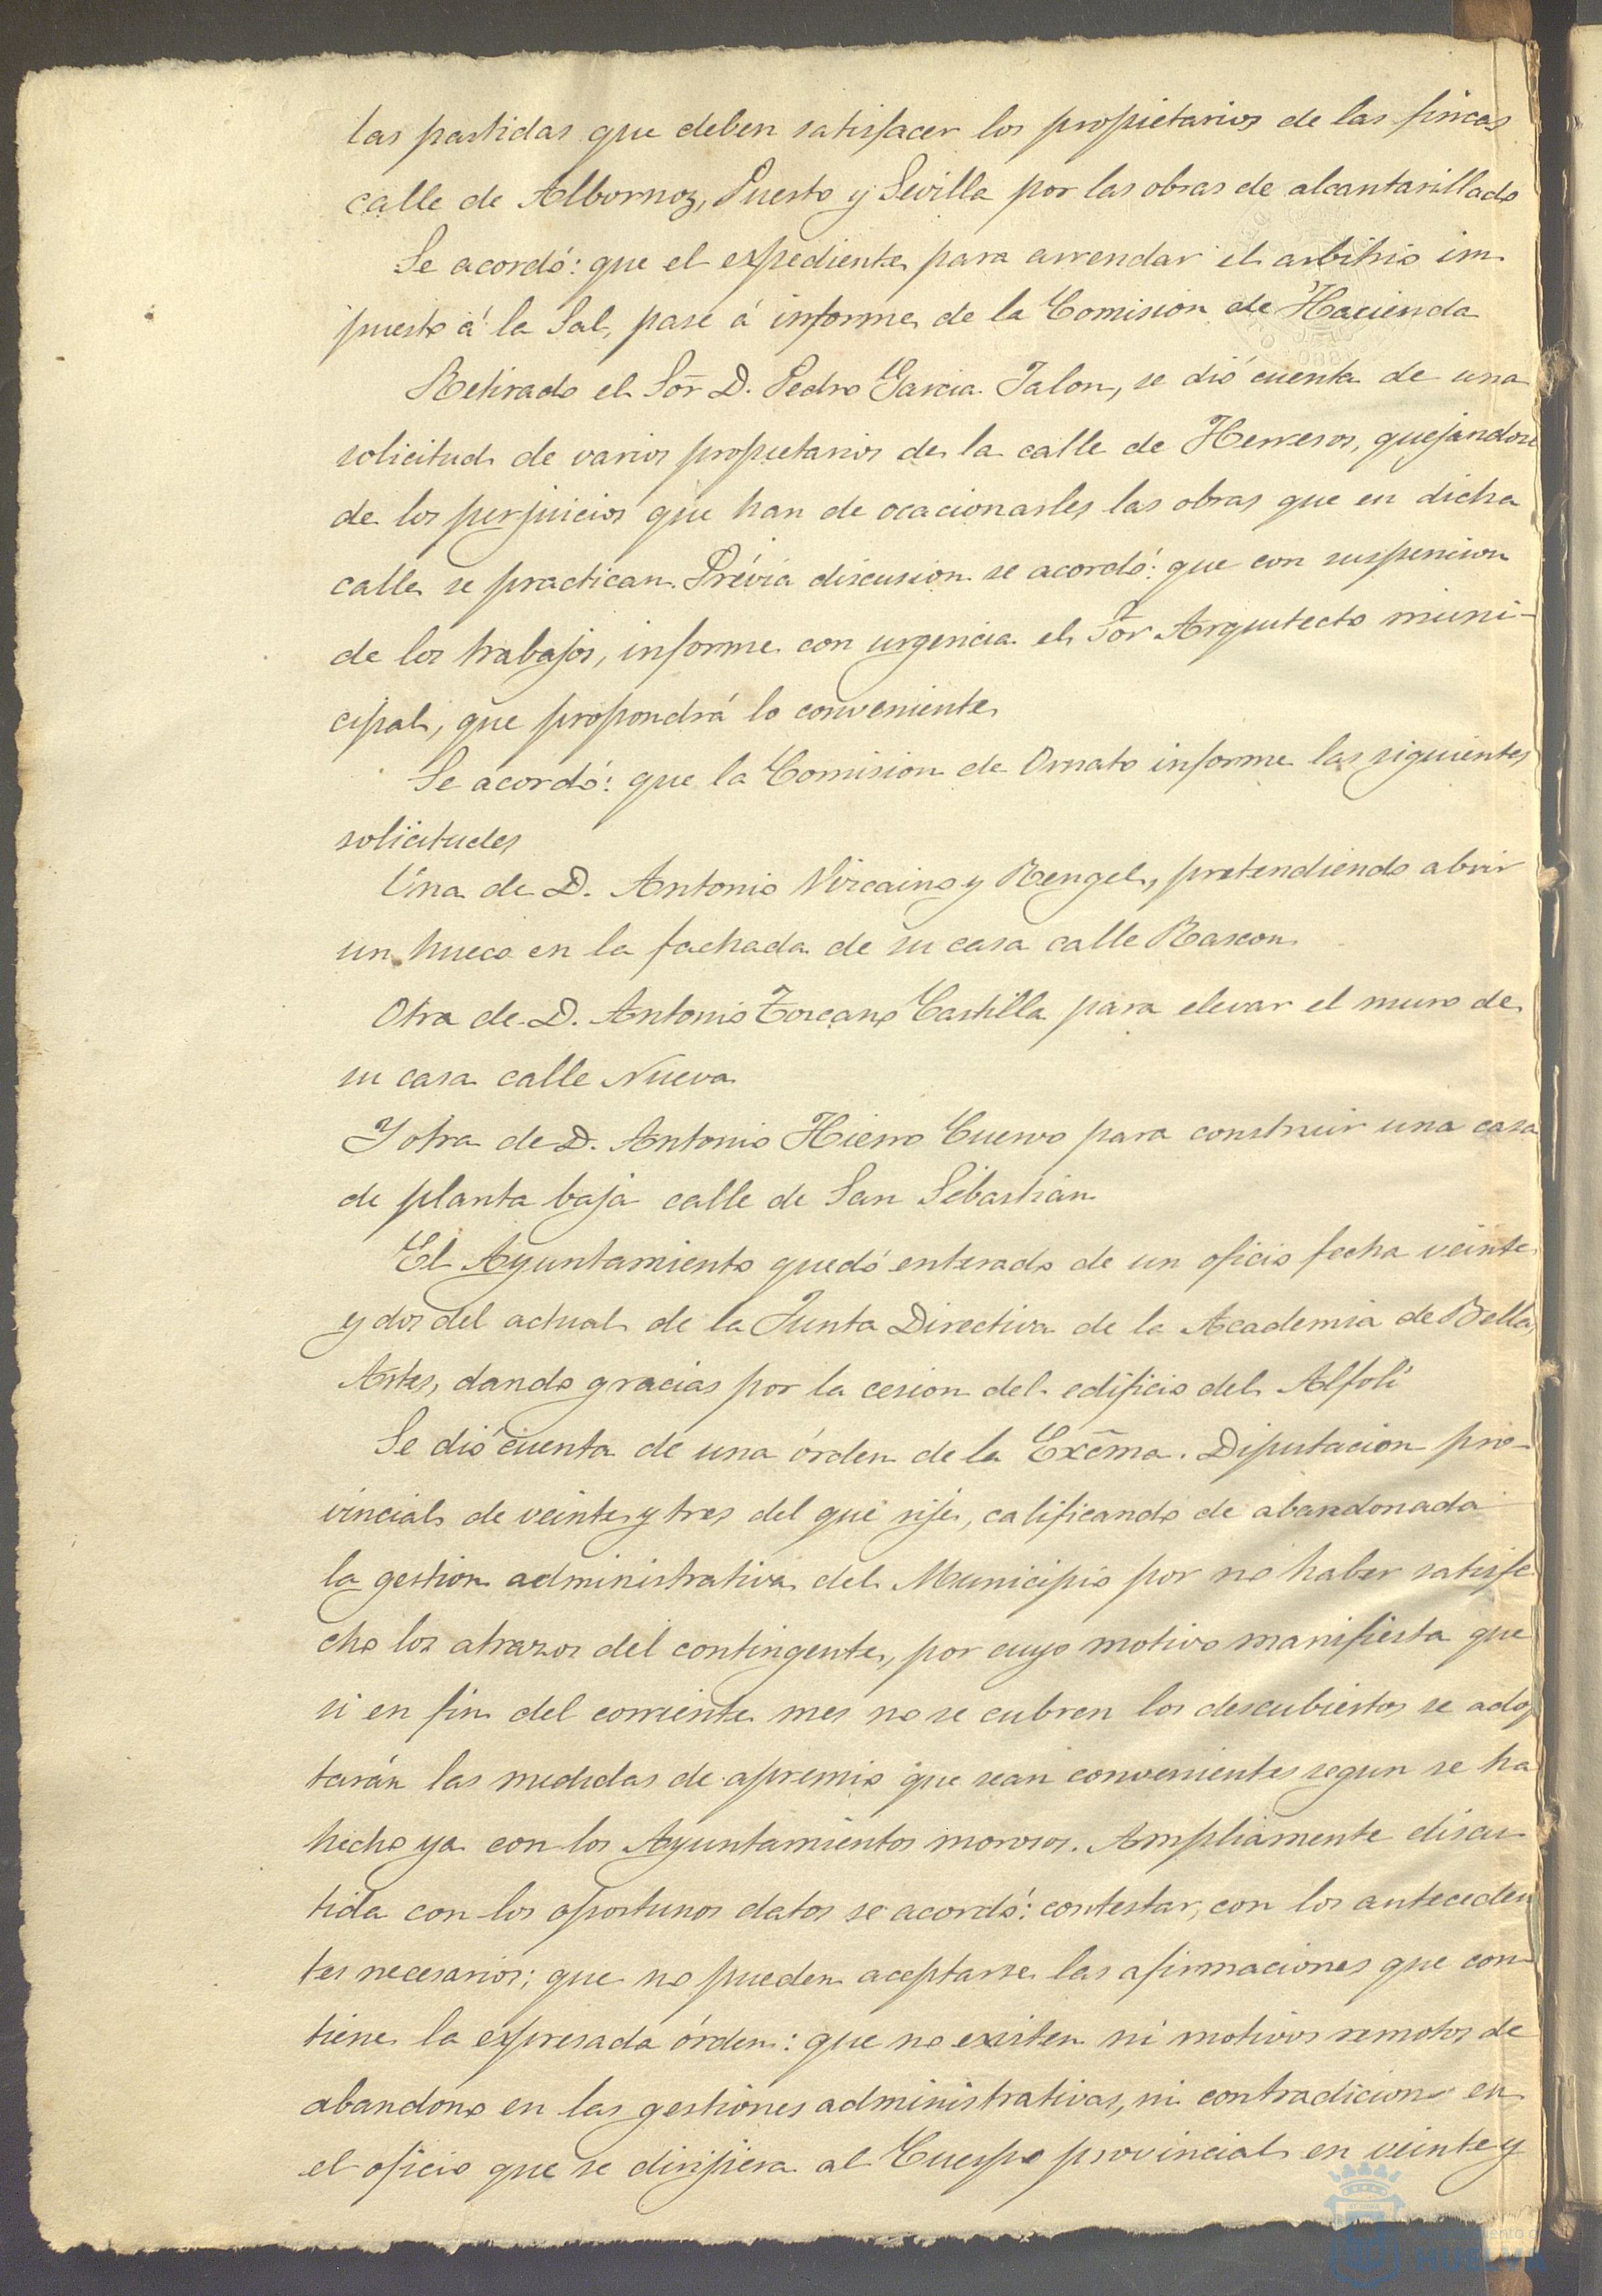 las partidas que deben satisfacer los propietarios de las fincas
calle de Albornoz, Puerto y Sevilla por las obras de alcantarillado
Se acordó: que el expediente para arrendar el arbitrio im
puesto á la Sal, pase á informe de la Comision de Hacienda
Retirado el Sor̃ D. Pedro Garcia Jalon, se dió cuenta de una
solicitud de varios propietarios de la calle de Herreros, quejandose
de los perjuicios que han de ocacionarles las obras que en dicha
calle se practican. Prévia discusion se acordó: que con suspencion
de los trabajos, informe con urgencia el Sor Arquitecto muni-
cipal, que propondrá lo conveniente
Se acordó: que la Comision de Ornato informe las siguientes
solicitudes
Una de D. Antonio Vizcaino y Rengel, pretendiendo abrir
un hueco en la fachada de su casa calle Rascon
Otra de D. Antonio Toscano Castilla para elevar el muro de
su casa calle Nueva
Y otra de D. Antonio Hierro Cuervo para construir una casa
de planta baja calle de San Sebastian
El Ayuntamiento quedó enterado de un oficio fecha veinte
y dos del actual de la Junta Directiva de la Academia de Bellas
Artes, dando gracias por la cesion del edificio del Alfolí
Se dió cuenta de una órden de la Excm̃a. Diputacion pro-
vincial de veinte y tres del que rije, calificando de abandonada
la gestion administrativa del Municipio por no haber satisfe
cho los atrazos del contingente, por cuyo motivo manifiesta que
si en fin del corriente mes no se cubren los descubiertos se adop
tarán las medidas de apremio que sean convenientes segun se ha
hecho ya con los Ayuntamientos morosos. Ampliamente discu
tida con los oportunos datos se acordó: contestar, con los anteceden
tes necesarios; que no pueden aceptarse las afirmaciones que con
tiene la expresada órden: que no existen ni motivos remotos de
abandono en las gestiones administrativas, ni contradicion en
el oficio que se dirijiera al Cuerpo provincial en veinte y
HUELVA